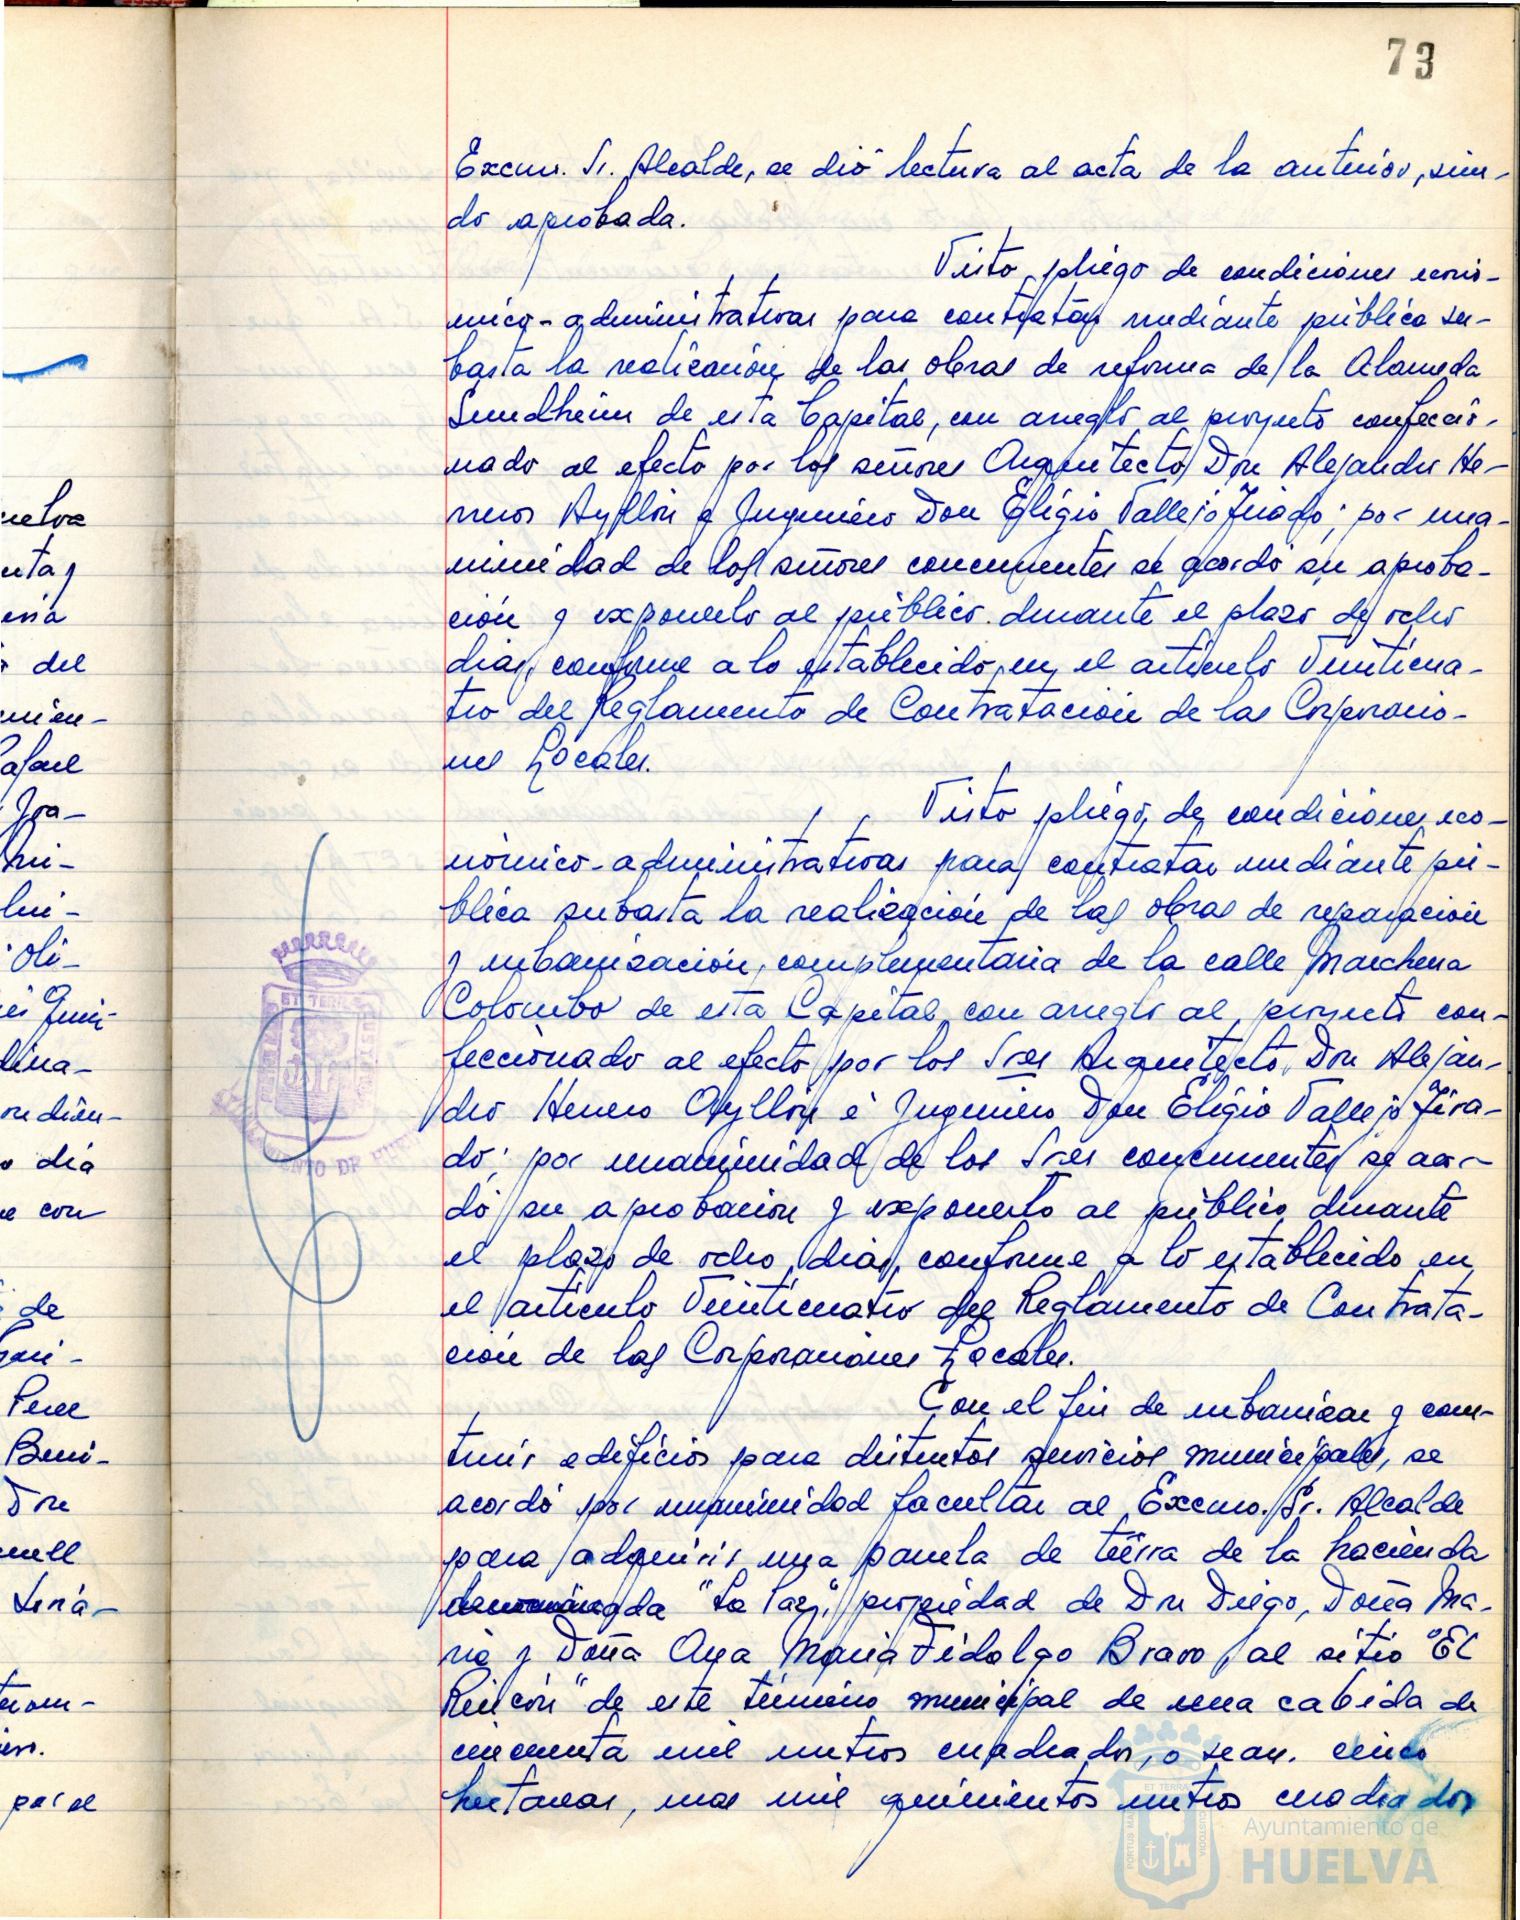 73
Excmo. Sr. Alcalde, se dió lectura al acta de la anterior, sien-
do aprobada.
Visto pliego de condiciones econó-
mico-administrativas para contratar mediante pública su-
basta la realización de las obras de reforma de la Alameda
Sundheim de esta Capital, con arreglo al proyecto confeccio-
nado al efecto por los señores Arquitecto Don Alejandro He-
rrero Ayllón e Ingeniero Don Eligio Vallejo Tirado; por una-
nimidad de los señores concurrentes se acordó su aproba-
ción y exponerlo al público durante el plazo de ocho
dias, conforme a lo establecido en el artículo Veinticua-
tro del Reglamento de Contratación de las Corporacio-
nes Locales.
Visto pliego de condiciones eco-
nómico-administrativas para contratar mediante pú-
blica subasta la realización de las obras de reparación
y urbanización complementaria de la calle Marchena
Colombo de esta Capital con arreglo al proyecto con-
feccionado al efecto por los Sres Arquitecto Don Alejan-
dro Herrero Ayllón é Ingeniero Don Eligio Vallejo Tira-
do; por unanimidad de los Sres concurrentes se acor-
dó su aprobación y exponerlo al público durante
el plazo de ocho dias, conforme a lo establecido en
el artículo Veinticuatro del Reglamento de Contrata-
ción de las Corporaciones Locales.
Con el fin de urbanizar y cons-
truir edificios para distintos servicios municipales, se
acordó por unanimidad facultar al Excmo. Sr. Alcalde
para adquirir una parcela de tierra de la hacienda
denominada "La Paz", propiedad de Don Diego, Doña Ma-
ria y Doña Ana Maria Fidalgo Bravo, al sitio "El
Rincón" de este término municipal de una cabida de
cincuenta mil metros cuadrados, o sean. cinco
hectareas, mas mil quinientos metros cuadrados
uelva
enta y
del
Rafael
Fra-
Oli-
dina-
dia
con
de
Beni-
Don
por el
ET TERRAE
AYUNTAMIENTO DE HUELVA
ET TERRA
PORTUS MA
CUSTODIA
Ayuntamiento de
HUELVA